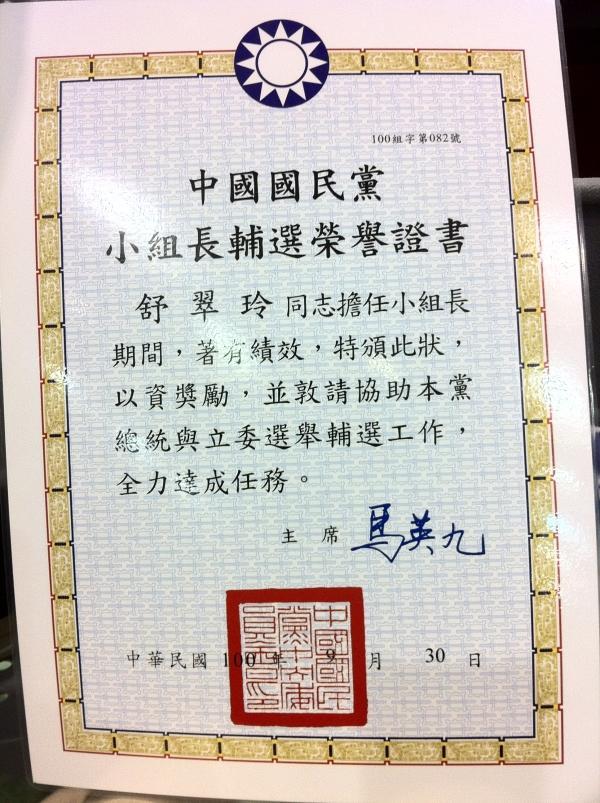 100組字第082號
中國國民黨
小組長輔選榮譽證書
舒翠玲同志擔任小組長
期間，著有績效，特頒此狀，
以資獎勵，並敦請協助本黨
總統與立委選舉輔選工作，
全力達成任務。
主席 馬英九
中華民國 100 年 9 月 30 日